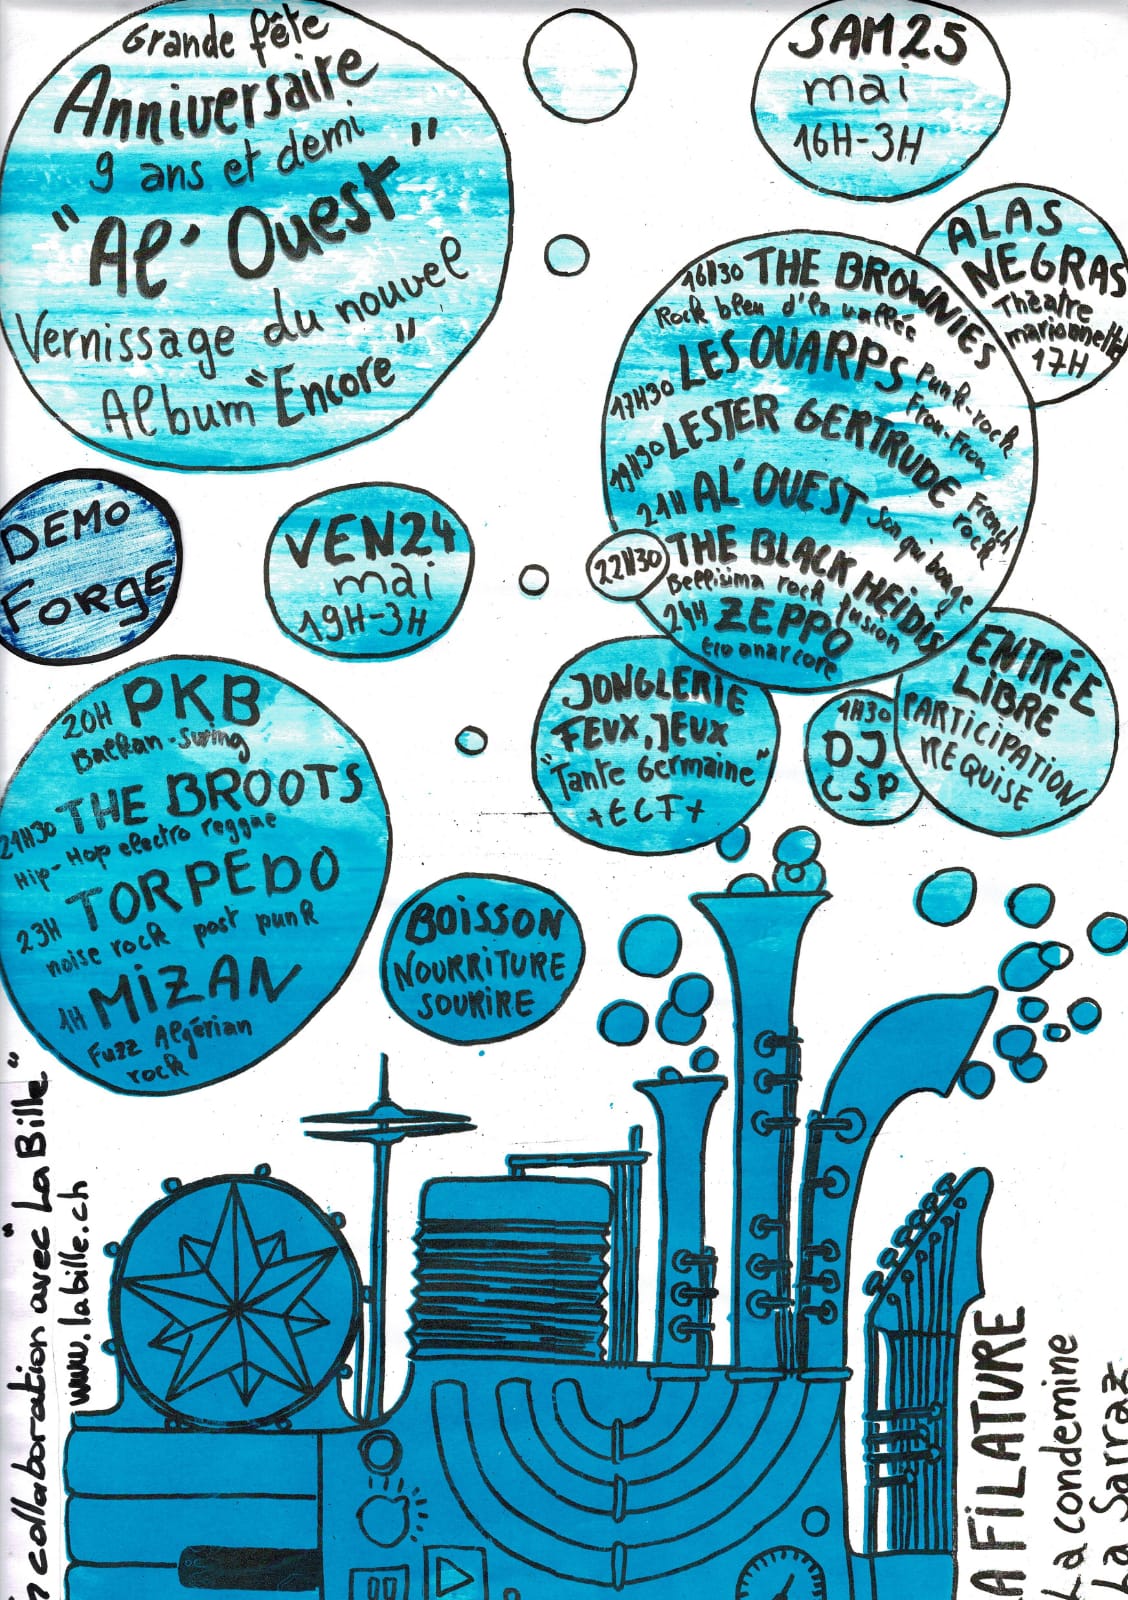 Grande fête
Anniversaire
9 ans et demi
"Al' Ouest"
Vernissage du nouvel
Album "Encore"
SAM 25
mai
16H-3H
ALAS
NEGRAS
Théâtre
marionnette
17H
16H30 THE BROWNIES
Rock bleu d'la vallée
17H30 LES OUARPS Punk-rock
Frou-Frou
19H30 LESTER GERTRUDE French
rock
21H AL' OUEST Son qui bouge
22H30 THE BLACK HEIDIS
Bellisima rock fusion
24H ZEPPO
anarcore
DEMO
FORGE
VEN 24
mai
19H-3H
20H PKB
Balkan-Swing
21H30 THE BROOTS
Hip-Hop electro reggae
23H TORPEDO
noise rock post punk
1H MiZAN
Fuzz Algérian
rock
JONGLERIE
FEUX, JEUX
"Tante Germaine"
+ECT+
1H30
DJ
CSP
ENTRÉE
LIBRE
PARTICIPATION
REQUISE
BOISSON
NOURRiTURE
SOURIRE
collaboration avec "La Bille"
www.labille.ch
A FiLATURE
La condemine
La Sarraz